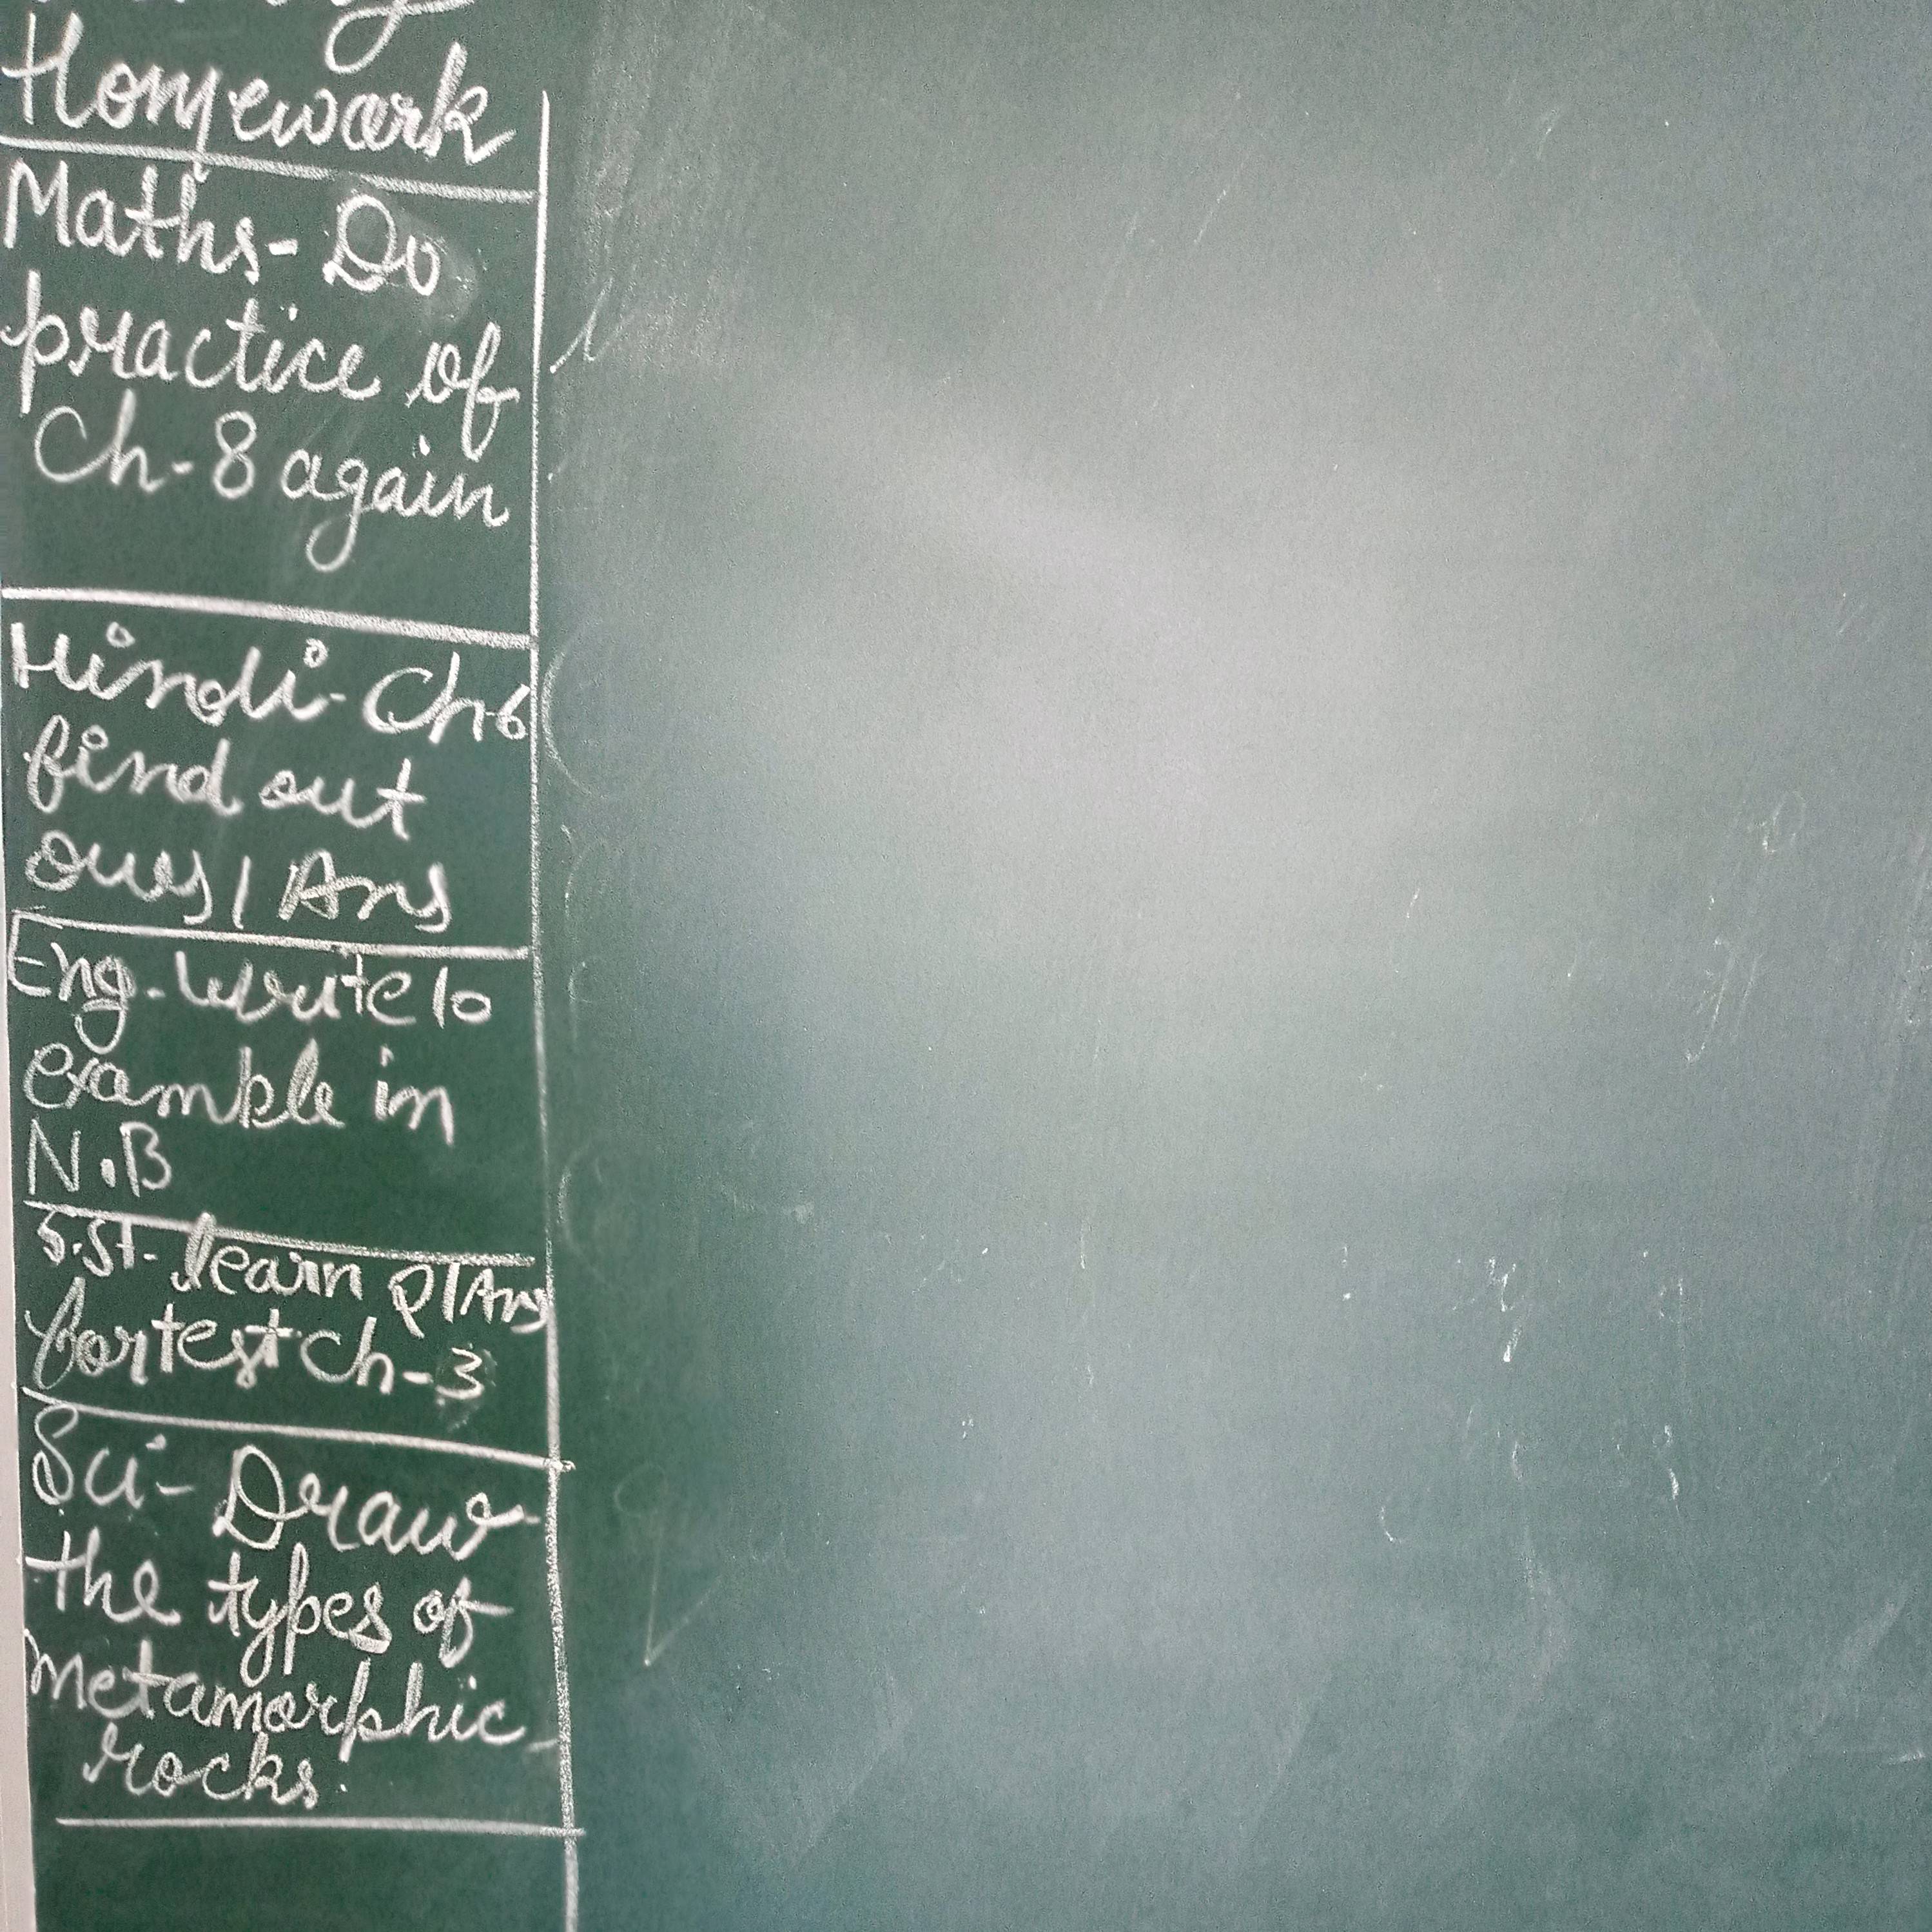 Homework
Maths- Do
practice of
Ch-8 again
Hindi- Ch-6
find out
Ques/Ans
Eng. Write 10
example in
N.B
S.St- learn Q/Ans
for test Ch-3
Sci- Draw
the types of
metamorphic
rocks.